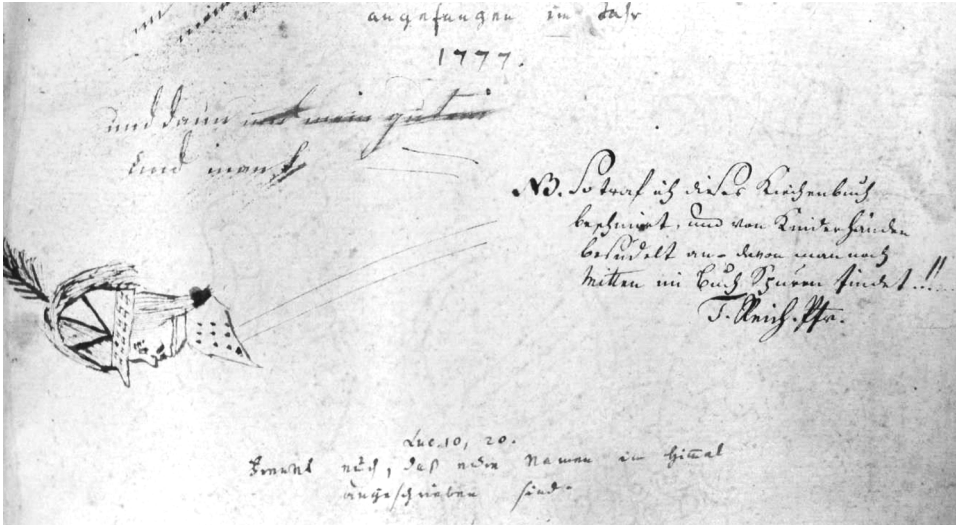 angefangen im Jahr
1777.
und dann und mein guten
und man
NB. So traf ich dieses Kirchenbuch
beschmiert, und von Kinderhänden
besudelt an - davon man noch
Mitten im Buch Spuren findet..!!
T. Reich. Pfr.
Luc. 10, 20.
Freuet euch, daß eure Namen im Himel
angeschrieben sind.